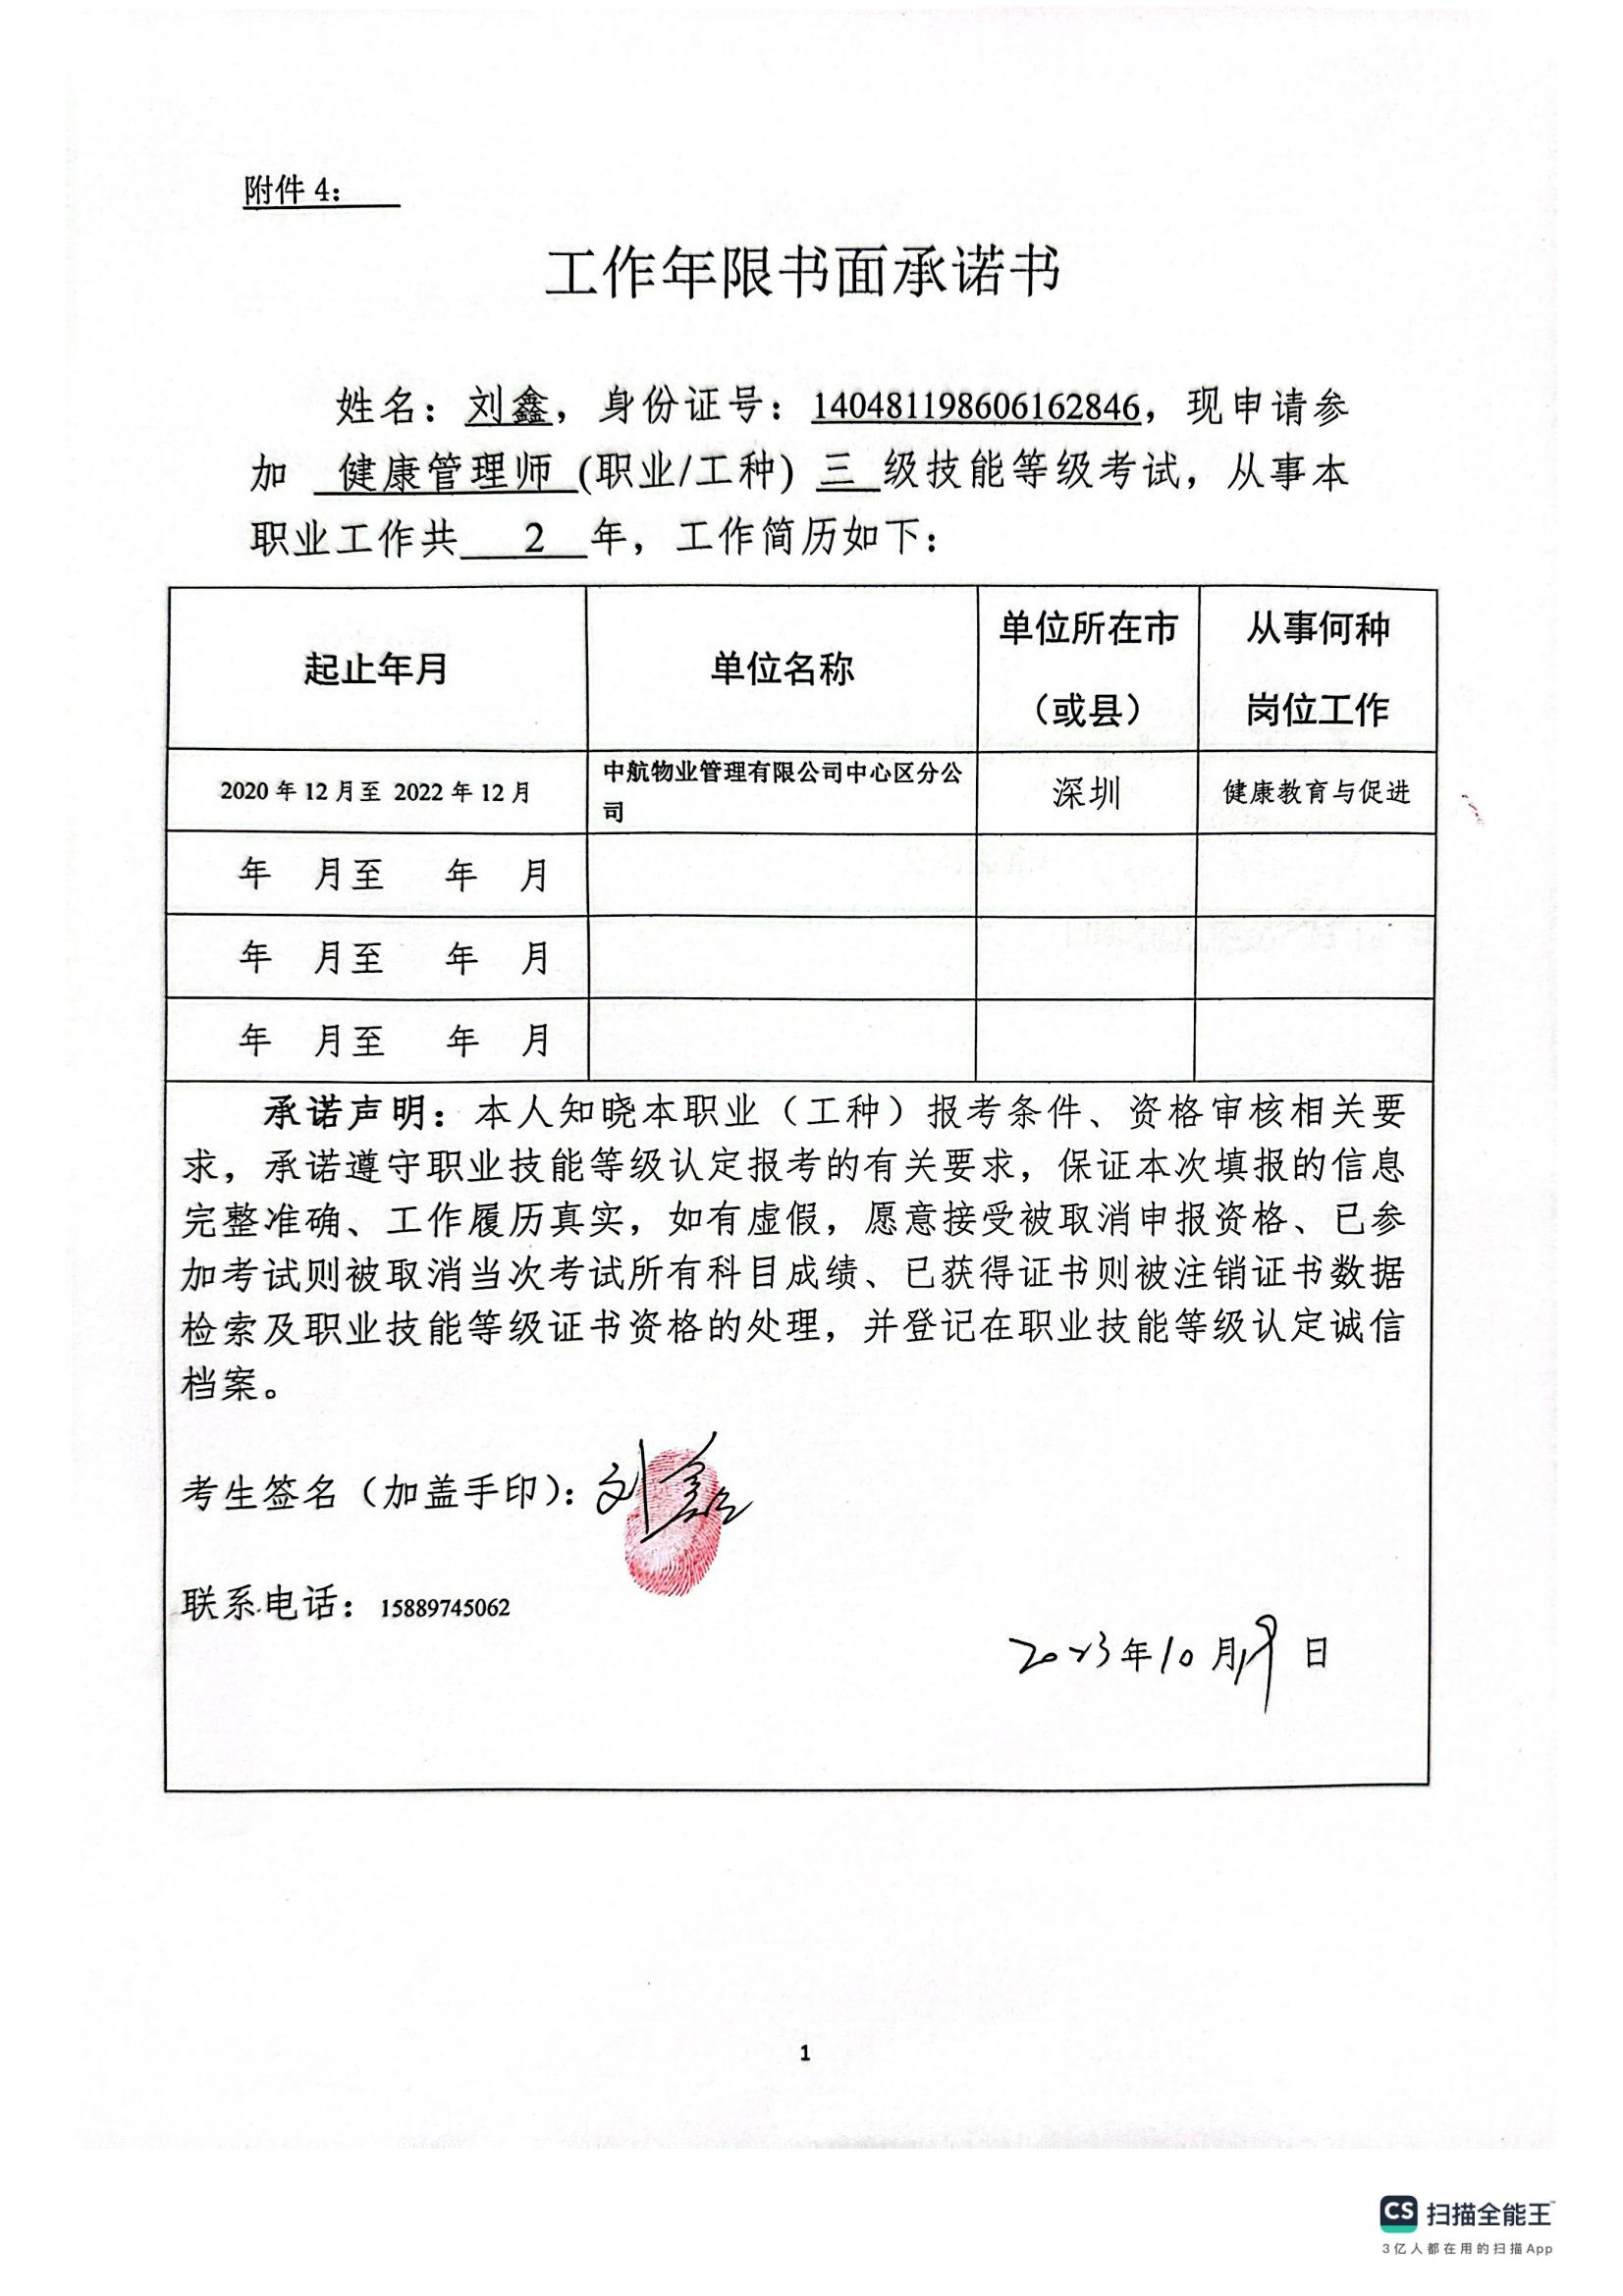 附件 4：
工作年限书面承诺书
姓名：刘鑫，身份证号：140481198606162846，现申请参
加 健康管理师 (职业/工种) 三 级技能等级考试，从事本
职业工作共 2 年，工作简历如下：
起止年月 单位名称 单位所在市（或县） 从事何种岗位工作
2020 年 12 月至 2022 年 12 月 中航物业管理有限公司中心区分公司 深圳 健康教育与促进
年 月至 年 月
年 月至 年 月
年 月至 年 月
承诺声明：本人知晓本职业（工种）报考条件、资格审核相关要
求，承诺遵守职业技能等级认定报考的有关要求，保证本次填报的信息
完整准确、工作履历真实，如有虚假，愿意接受被取消申报资格、已参
加考试则被取消当次考试所有科目成绩、已获得证书则被注销证书数据
检索及职业技能等级证书资格的处理，并登记在职业技能等级认定诚信
档案。
考生签名（加盖手印）：刘鑫
联系电话：15889745062
2023年10月19日
1
CS 扫描全能王
3亿人都在用的扫描App